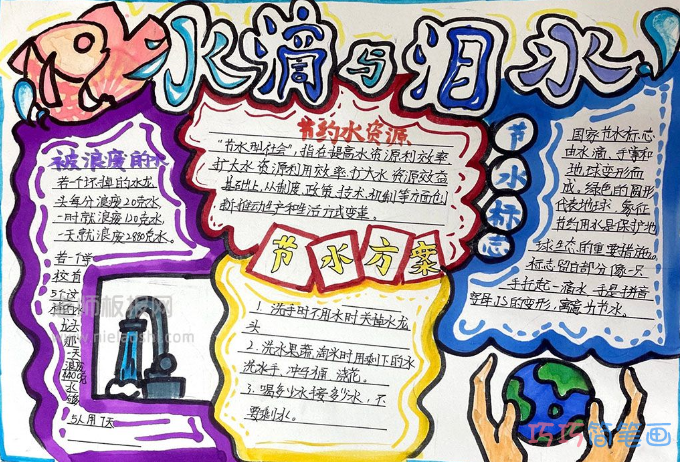 水滴与泪水
被浪废的水
若一个坏掉的水龙
头每分浪废20克水
一时就浪废120克水
一天就浪废2880克水.
若一个学
校有
5个
龙
那
一天
浪废
水
5人用7天
节约水资源
"节水型社会",指在提高水资源利效率
扩大水资源利用效率扩大水资源效态
基础上,从制度,政策,技术,机制等方面也
断推动生产和生活方式变革。
节水方案
1.洗手时不用水时关掉水龙
头
2.洗水果蔬淘米时用剩下的水
洗水手,冲马桶,浇花。
3.喝多少水接多少水,不
要剩水。
节水标志
国家节水标志
由水滴、手掌和
地球变形而
成,绿色的圆形
代表地球,象征
节约用水是保护地
球生态的重要措施。
标志留白部分像一只
手托起一滴水,手是拼音
字母JS的变形,寓意为节水。
老师板报网
巧巧简笔画